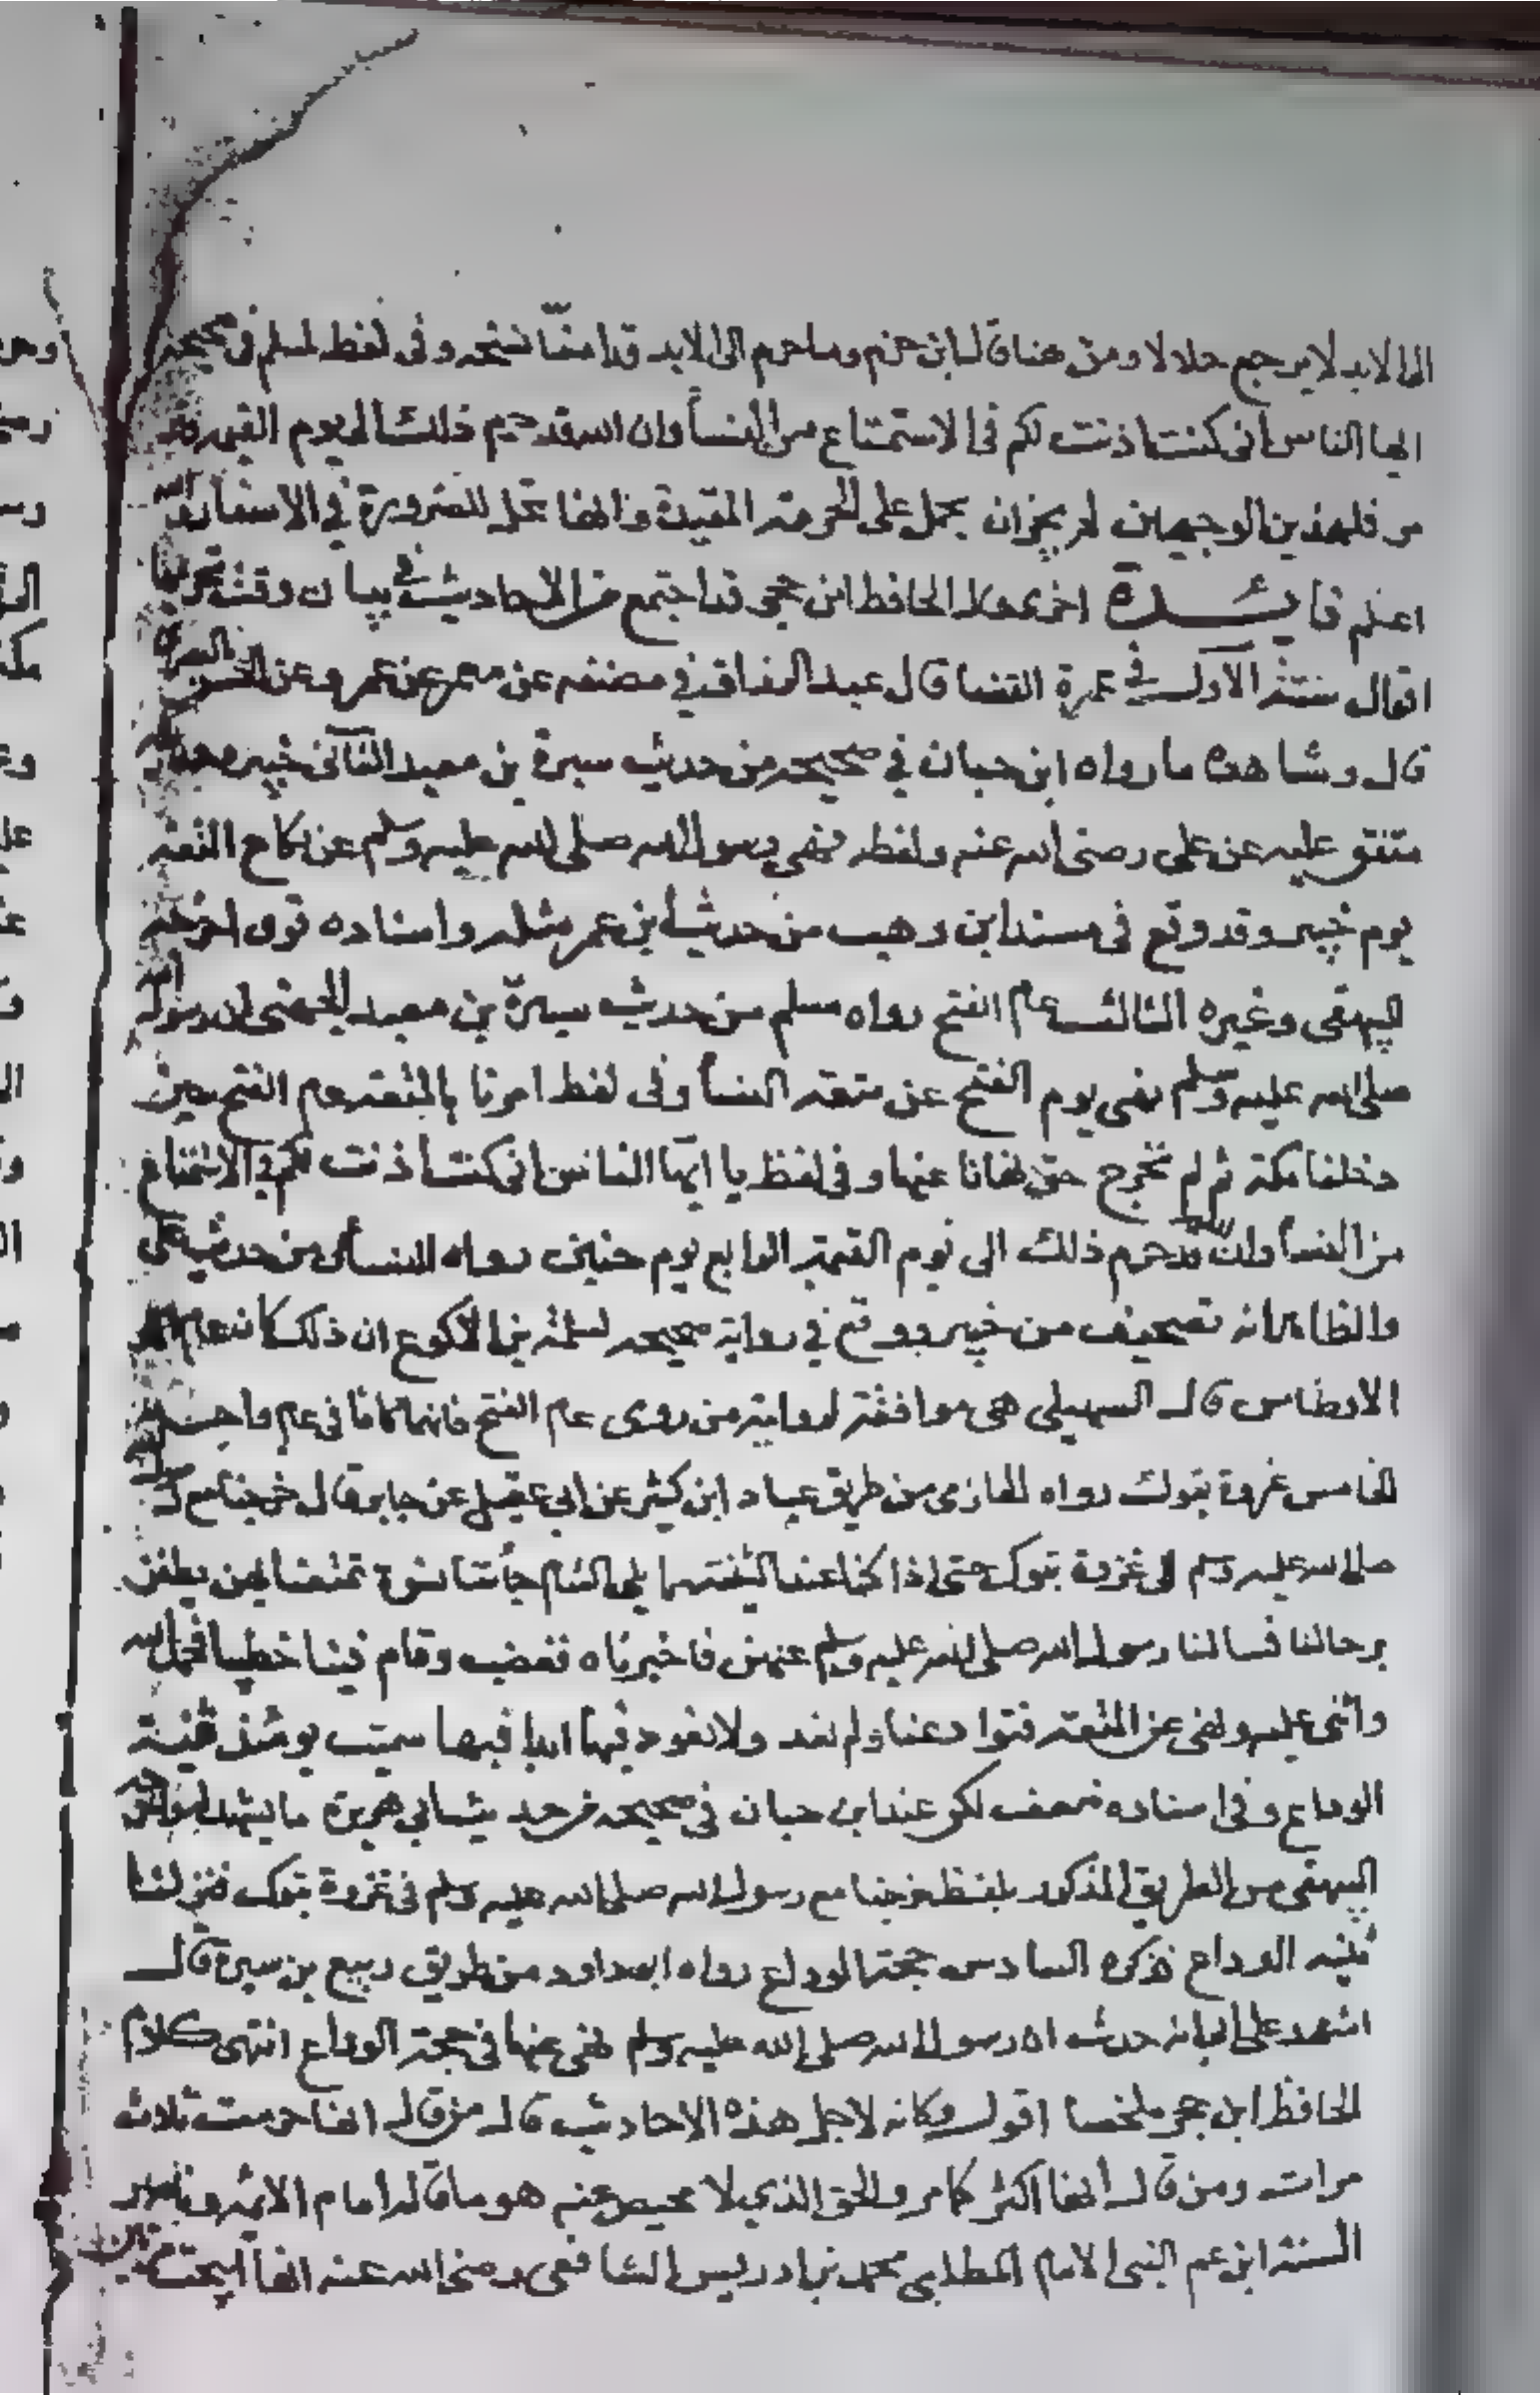 الى الابد لا يرجع حلالا ومن هنا قال ابن حزم وما حرم الى الابد فقد امنّا نسخه وفى لفظ لمسلم فى صحيحه
ايها الناس انى كنت اذنت لكم فى الاستمتاع من النسآ وان الله قد حرم ذلك الى يوم القيمة
مر فلهذين الوجهين لم يجز ان يحمل على الحرمة المقيدة وانها تحل للضرورة فى الاسفار
اعلم فايــدة اخرى قال الحافظ ابن حجر قد اجتمع من الاحاديث فى بيان وقت تحريمها
اقوال ستة الاول فى عمرة القضا قال عبد الرزاق فى مصنفه عن معمر عن عمرو عن الحسن
قال وشاهده ما رواه ابن حبان فى صحيحه من حديث سبرة بن معبد الثانى خيبر
متفق عليه عن على رضى الله عنه ولفظه نهى رسول الله صلى الله عليه وسلم عن نكاح المتعة
يوم خيبر وقد وقع فى مسند ابن وهب من حديث ابن عمر مثله واسناده قوى اخرجه
البيهقى وغيره الثالث عام الفتح رواه مسلم من حديث سبرة بن معبد الجهنى ان رسول الله
صلى الله عليه وسلم نهى يوم الفتح عن متعة النسآ وفى لفظ امرنا بالمتعة عام الفتح حين
دخلنا مكة ثم لم نخرج حتى نهانا عنها وفى لفظ يا ايها الناس انى كنت اذنت لكم فى الاستمتاع
من النسآ وان الله قد حرم ذلك الى يوم القيمة الرابع يوم حنين رواه النسآى من حديث على
والظاهر انه تصحيف من خيبر ووقع فى رواية صحيحه لسلمة بن الاكوع ان ذلك كان عام
الاوطاس قال السهيلى هى موافقة لرواية من روى عام الفتح فانهما كانا فى عام واحد
الخامس غزوة تبوك رواه الحازمى من طريق عباد ابن كثير عن ابى عقيل عن جابر قال خرجنا مع رسول الله
صلى الله عليه وسلم الى غزوة تبوك حتى اذا كنا عند الثنية مما يلى الشام جآتنا نسوة تمتعنا بهن يطفن
برحالنا فسالنا رسول الله صلى الله عليه وسلم عنهن فاخبرناه فغضب وقام فينا خطيبا فحمد الله
واثنى عليه ونهى عن المتعة فتوادعنا ولم نعد ولا نعود فيها ابدا فبها سميت يومئذ ثنية
الوداع وفى اسناده ضعف لكن عند ابن حبان فى صحيحه من حديث ابى هريرة ما يشهد له
البيهقى من الطريق المذكور بلفظ خرجنا مع رسول الله صلى الله عليه وسلم فى غزوة تبوك فنزلنا
ثنية الوداع فذكره السادس حجة الوداع رواه ابو داود من طريق ربيع بن سبرة قال
اشهد على ابى انه حدث ان رسول الله صلى الله عليه وسلم نهى عنها فى حجة الوداع انتهى كلام
الحافظ ابن حجر ملخصا اقول وكانه لاجل هذه الاحاديث قال من قال انها حرمت ثلاث
مرات ومن قال انها اكثر كامر والحق الذى لا محيص عنه هو ما قاله امام الائمة وناصر
السنة ابن عم النبى الامام المطلبى محمد بن ادريس الشافعى رضى الله عنه انها ابيحت مرتين